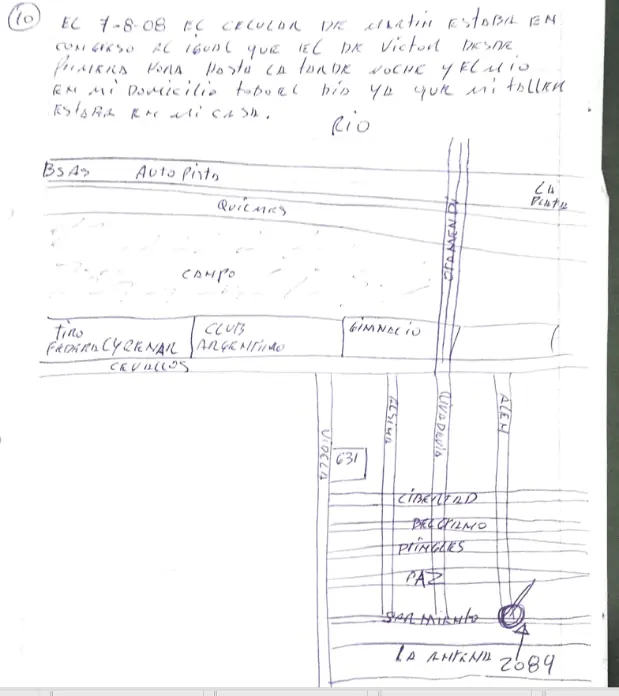 10
EL 7-8-08 EL CELULAR DE MARTIN ESTABA EN
CONGRESO AL IGUAL QUE EL DE VICTOR DESDE
PRIMERA HORA HASTA LA TARDE NOCHE Y EL MIO
EN MI DOMICILIO TODO EL DIA YA QUE MI TALLER
ESTABA EN MI CASA.
RIO
BSAS AUTOPISTA
LA PLATA
QUILMES
OTAMENDI
CAMPO
TIRO
FEDERAL
CLUB
ARGENTINO
GIMNACIO
CEVALLOS
VIDELA
ALSINA
RIVADAVIA
ALEM
631
LIBERTAD
BELGRANO
PRINGLES
PAZ
SARMIENTO
LA ANTENA 2089